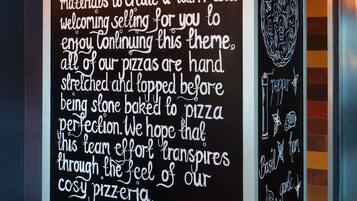 materials to create a warm and
welcoming setting for you to
enjoy. Continuing this theme,
all of our pizzas are hand
stretched and topped before
being stone baked to pizza
perfection. We hope that
this team effort transpires
through the feel of our
cosy pizzeria.
pepper
Basil